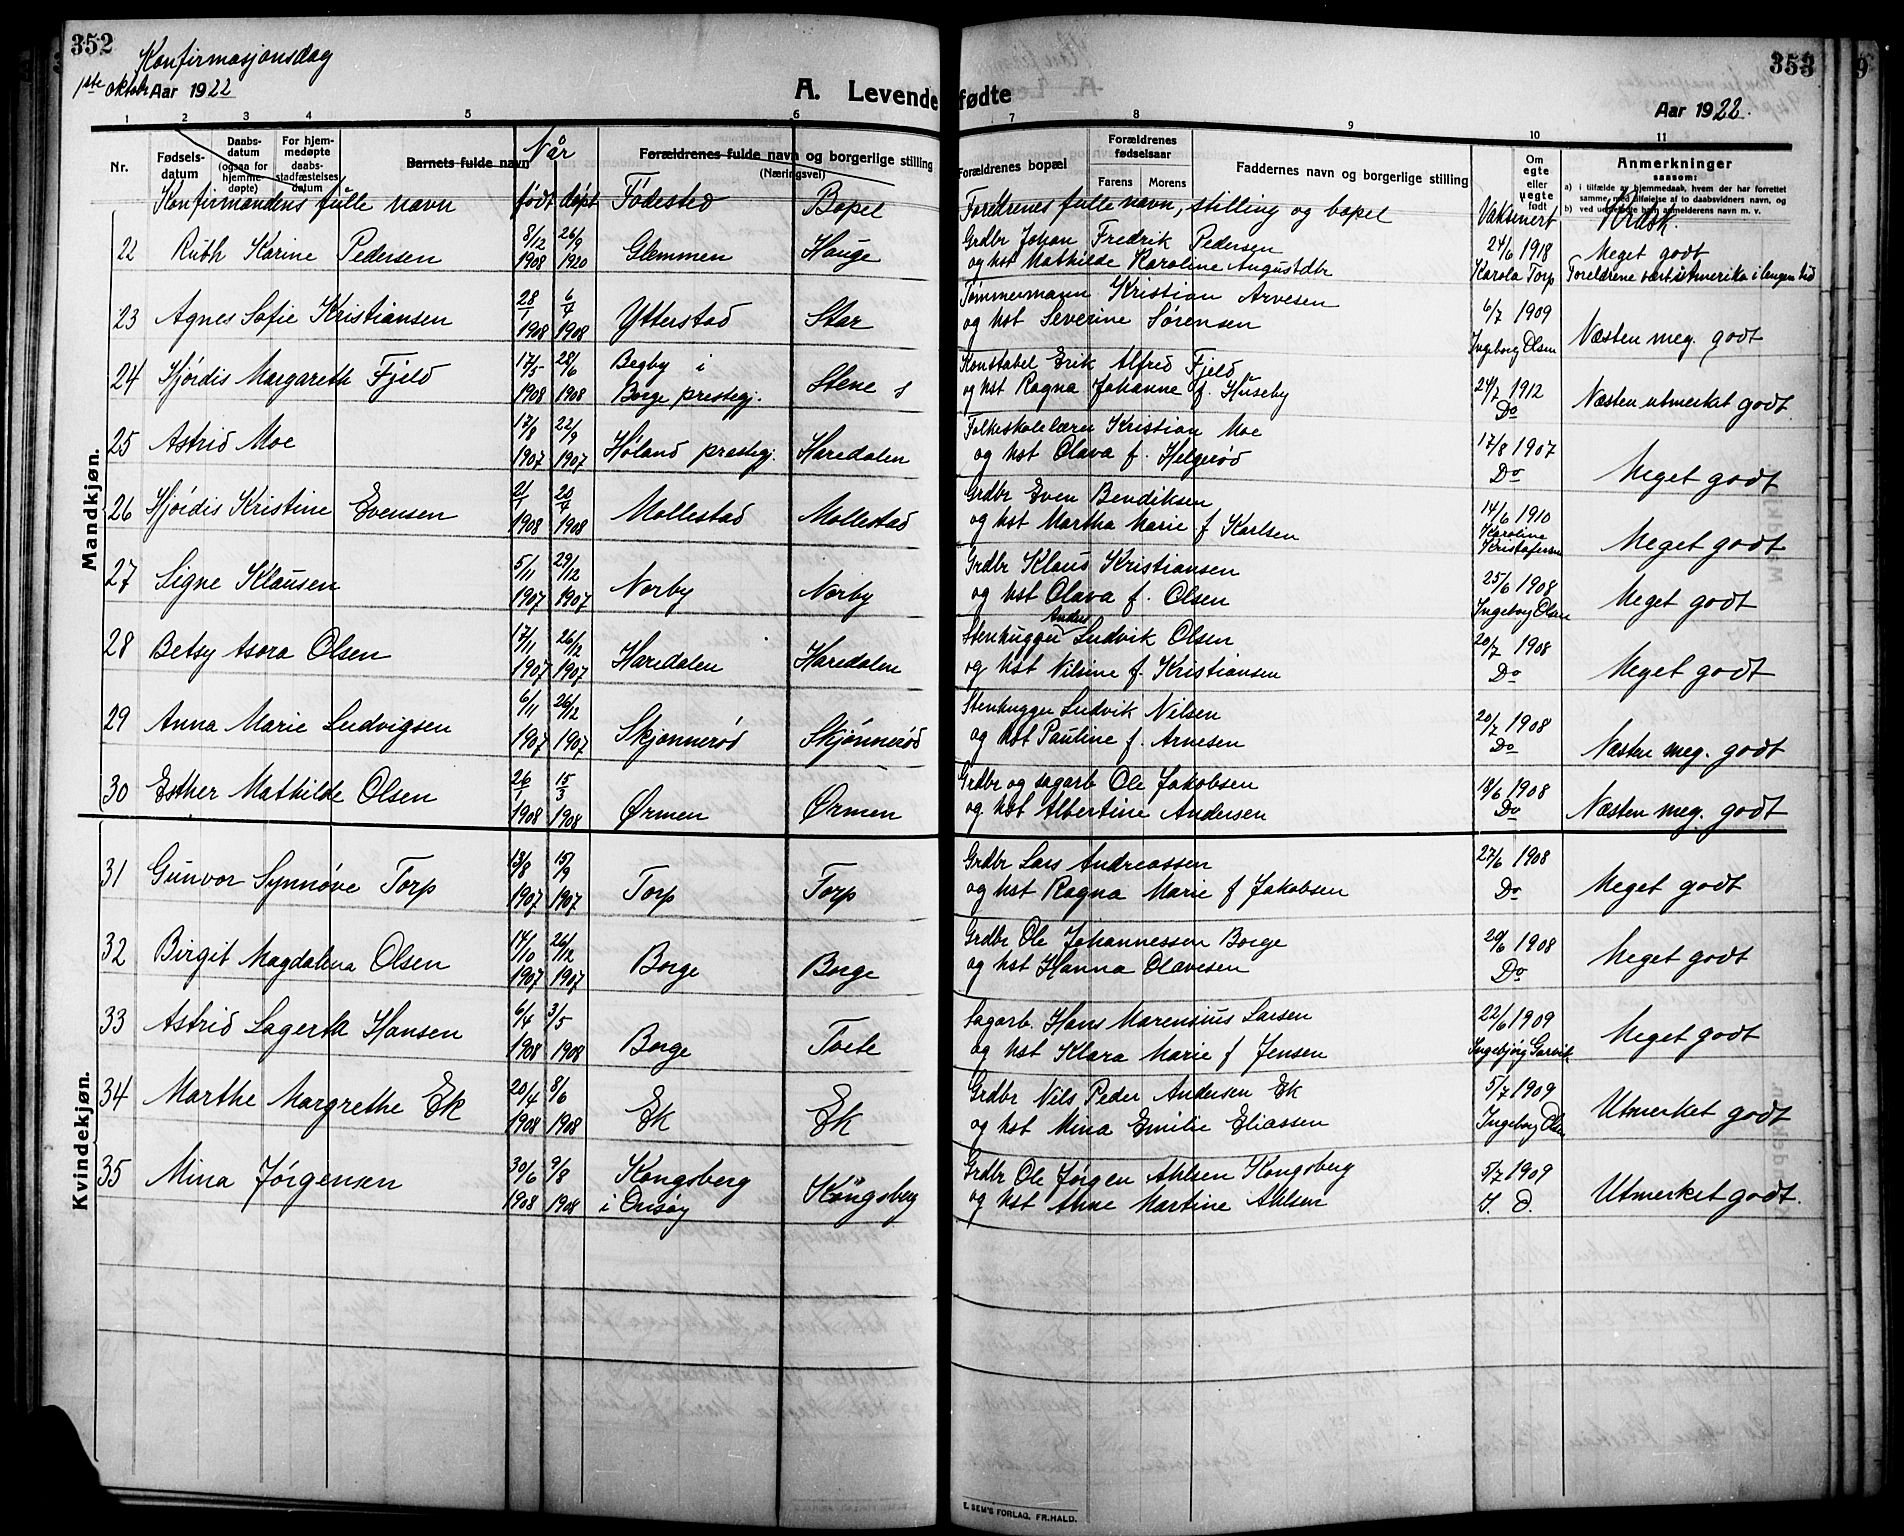 352
Konfirmasjonsdag
1ste oktobr Aar 1922
A. Levende
1 2 3 4 5 6
Nr. Fødsels-datum Daabs-datum (ogsaa for hjemme-døpte) For hjem-medøpte daabs-stadfæstelses datum Barnets fulde navn Når Forældrenes fulde navn og borgerlige stilling (Næringsvei)
Konfirmandens fulle navn født døpt Fødested Bopel
Mandkjøn.
22 Ruth Karine Pedersen 8/12 1908 26/9 1920 Glemmen Hauge
23 Agnes Sofie Kristiansen 28/1 1908 6/4 1908 Ytterstad Star
24 Hjørdis Margareth Fjeld 17/5 1908 28/6 1908 Begby i Borge prestegj. Stene
25 Astrid Moe 17/8 1907 22/9 1907 Høland prestegj. Haredalen
26 Hjørdis Kristine Evensen 2/1 1908 20/4 1908 Mollestad Mollestad
27 Signe Klausen 5/11 1907 29/12 1907 Norby Norby
28 Betsy Asora Olsen 17/11 1907 26/12 1907 Haredalen Haredalen
29 Anna Marie Ludvigsen 6/11 1907 26/12 1907 Skjønnerød Skjønnerød
30 Esther Mathilde Olsen 26/1 1908 15/3 1908 Ørmen Ørmen
Kvindekjøn.
31 Gunvor Synnøve Torp 13/8 1907 15/9 1907 Torp Torp
32 Birgit Magdalena Olsen 14/10 1907 26/12 1907 Borge Borge
33 Astrid Lagerta Hansen 6/4 1908 3/5 1908 Borge Tvete
34 Marthe Margrethe Ek 20/4 1908 8/6 1908 Ek Ek
35 Mina Jørgensen 30/6 1908 9/8 1908 Kongsberg i Onsøy Kongsberg
353
fødte
Aar 1922.
7 8 9 10 11
Forældrenes bopæl Forældrenes fødselsaar Farens Morens Faddernes navn og borgerlige stilling Om egte eller uegte født Anmerkninger
saasom:
a) i tilfælde av hjemmedaab, hvem der har forrettet samme, med tilføielse af to daabsvidners navn, og
b) ved uegtefødte barn anmelderens navn m. v.
Foreldrenes fulle navn, stilling og bopel Vaksinert
Grdbr Johan Fredrik Pedersen 24/6 1918 Meget godt
og hst Mathilde Karoline Augustdtr Karola Torp Foreldrene vært i Amerika i lengen tid
Tømmermann Kristian Arvesen 6/7 1909
og hst Severine Sørensen Ingeborg Olsen Næsten meg. godt
Konstabel Erik Alfred Fjeld 24/7 1912
og hst Ragna Johanne f. Huseby Do Næsten utmerket godt.
Folkeskolelærer Kristian Moe 17/8 1907
og hst Olava f. Helgerød Do Meget godt
Grdbr Even Bendiksen 14/6 1910
og hst Martha Marie f Karlsen Karoline Kristofersen Meget godt
Grdbr Klaus Kristiansen 25/6 1908
og hst Olava f. Olsen Ingeborg Olsen Meget godt
Stenhugger Anders Ludvik Olsen 20/7 1908
og hst Nilsine f. Kristiansen Do Meget godt
Stenhugger Ludvik Nilsen 20/7 1908
og hst Pauline f. Arnesen Do Næsten meg. godt
Grdbr og sagarb Ole Jakobsen 18/6 1908
og hst Albertine Andersen Do Næsten meg. godt
Grdbr Lars Andreassen 27/6 1908
og hst Ragna Marie f Jakobsen Do Meget godt
Grdbr Ole Johannessen Borge 20/6 1908
og hst Hanna Olavesen Do Meget godt
Sagarb. Hans Marensius Larsen 22/6 1909
og hst Klara Marie f Jensen Ingebjørg Garvik Meget godt
Grdbr Nils Peder Andersen Ek 5/7 1909
og hst Mina Emilie Eliassen Ingeborg Olsen Utmerket godt
Grdbr Ole Jørgen Ahlsen Kongsberg 5/7 1909
og hst Anne Martine Ahlsen I. O. Utmerket godt.
E. SEM'S FORLAG, FR.HALD.